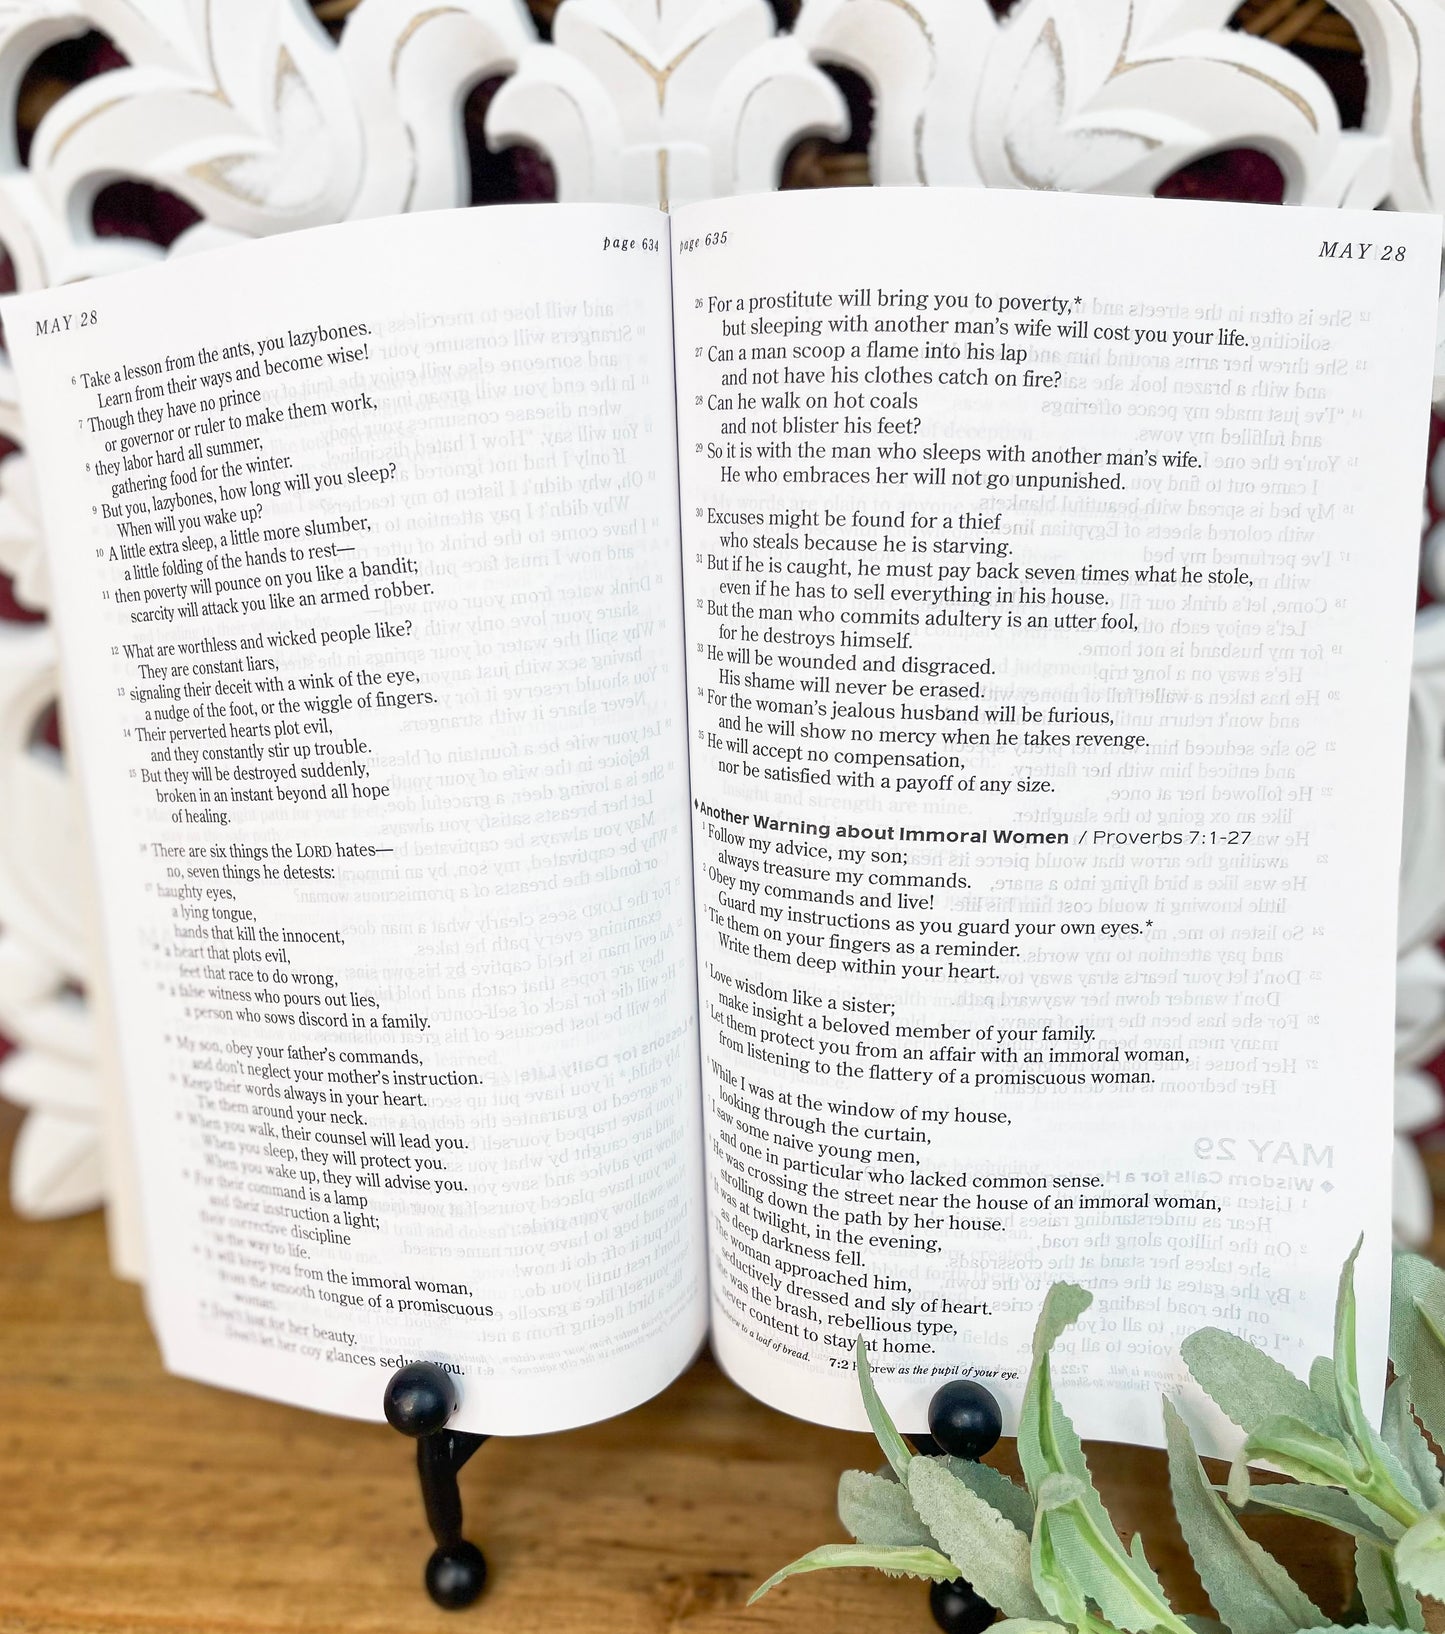 page 634
MAY 28
6 Take a lesson from the ants, you lazybones.
Learn from their ways and become wise!
7 Though they have no prince
or governor or ruler to make them work,
8 they labor hard all summer,
gathering food for the winter.
9 But you, lazybones, how long will you sleep?
When will you wake up?
10 A little extra sleep, a little more slumber,
a little folding of the hands to rest—
11 then poverty will pounce on you like a bandit;
scarcity will attack you like an armed robber.
12 What are worthless and wicked people like?
They are constant liars,
13 signaling their deceit with a wink of the eye,
a nudge of the foot, or the wiggle of fingers.
14 Their perverted hearts plot evil,
and they constantly stir up trouble.
15 But they will be destroyed suddenly,
broken in an instant beyond all hope
of healing.
16 There are six things the LORD hates—
no, seven things he detests:
17 haughty eyes,
a lying tongue,
hands that kill the innocent,
18 a heart that plots evil,
feet that race to do wrong,
19 a false witness who pours out lies,
a person who sows discord in a family.
20 My son, obey your father's commands,
and don't neglect your mother's instruction.
21 Keep their words always in your heart.
Tie them around your neck.
22 When you walk, their counsel will lead you.
When you sleep, they will protect you.
When you wake up, they will advise you.
23 For their command is a lamp
and their instruction a light;
their corrective discipline
is the way to life.
24 It will keep you from the immoral woman,
from the smooth tongue of a promiscuous
woman.
25 Don't lust for her beauty.
Don't let her coy glances seduce you.
page 635
MAY 28
26 For a prostitute will bring you to poverty,*
but sleeping with another man's wife will cost you your life.
27 Can a man scoop a flame into his lap
and not have his clothes catch on fire?
28 Can he walk on hot coals
and not blister his feet?
29 So it is with the man who sleeps with another man's wife.
He who embraces her will not go unpunished.
30 Excuses might be found for a thief
who steals because he is starving.
31 But if he is caught, he must pay back seven times what he stole,
even if he has to sell everything in his house.
32 But the man who commits adultery is an utter fool,
for he destroys himself.
33 He will be wounded and disgraced.
His shame will never be erased.
34 For the woman's jealous husband will be furious,
and he will show no mercy when he takes revenge.
35 He will accept no compensation,
nor be satisfied with a payoff of any size.
♦Another Warning about Immoral Women / Proverbs 7:1-27
1 Follow my advice, my son;
always treasure my commands.
2 Obey my commands and live!
Guard my instructions as you guard your own eyes.*
3 Tie them on your fingers as a reminder.
Write them deep within your heart.
4 Love wisdom like a sister;
make insight a beloved member of your family.
5 Let them protect you from an affair with an immoral woman,
from listening to the flattery of a promiscuous woman.
6 While I was at the window of my house,
looking through the curtain,
7 I saw some naive young men,
and one in particular who lacked common sense.
8 He was crossing the street near the house of an immoral woman,
strolling down the path by her house.
9 It was at twilight, in the evening,
as deep darkness fell.
10 The woman approached him,
seductively dressed and sly of heart.
was the brash, rebellious type,
never content to stay at home.
to a loaf of bread. 7:2 Hebrew as the pupil of your eye.